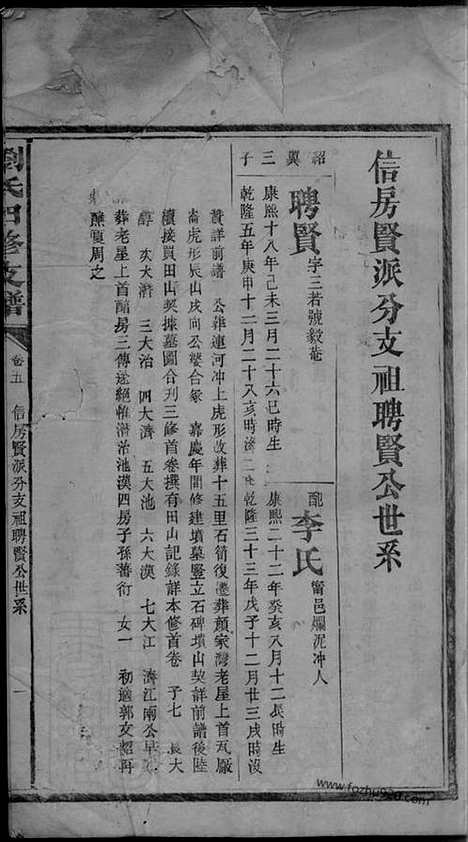 信房賢派分支祖聘賢公世系
紹箕三子
聘賢
字三若號毅菴
配李氏
甯邑爛泥冲人
康熙十八年己未三月二十六巳時生
康熙二十二年癸亥八月十二辰時生
乾隆五年庚申十二月二十八亥時
乾隆三十三年戊子十二月廿三戌時沒
贊詳前譜 公葬連河冲上虎形改葬十五里石箭復遷葬顏家灣老屋上首瓦廠
崙虎形辰山戌向公婆合冢 嘉慶年間修建墳墓豎立石碑墳山契詳前譜後陸
續接買田山契據墓圖合刋三修首卷撰有田山記錄詳本修首卷 子七 長大
醇 次大濟 三大治 四大濟 五大池 六大漢 七大江 濟江南公早
葬老屋上首醅房三傳遂絕惟濟治池漢四房子孫蕃衍 女一 初適郭文韶再
醮夏周之
劉氏四修支譜
卷五 信房賢派分支祖聘賢公世系
一
www.fozhu920.com